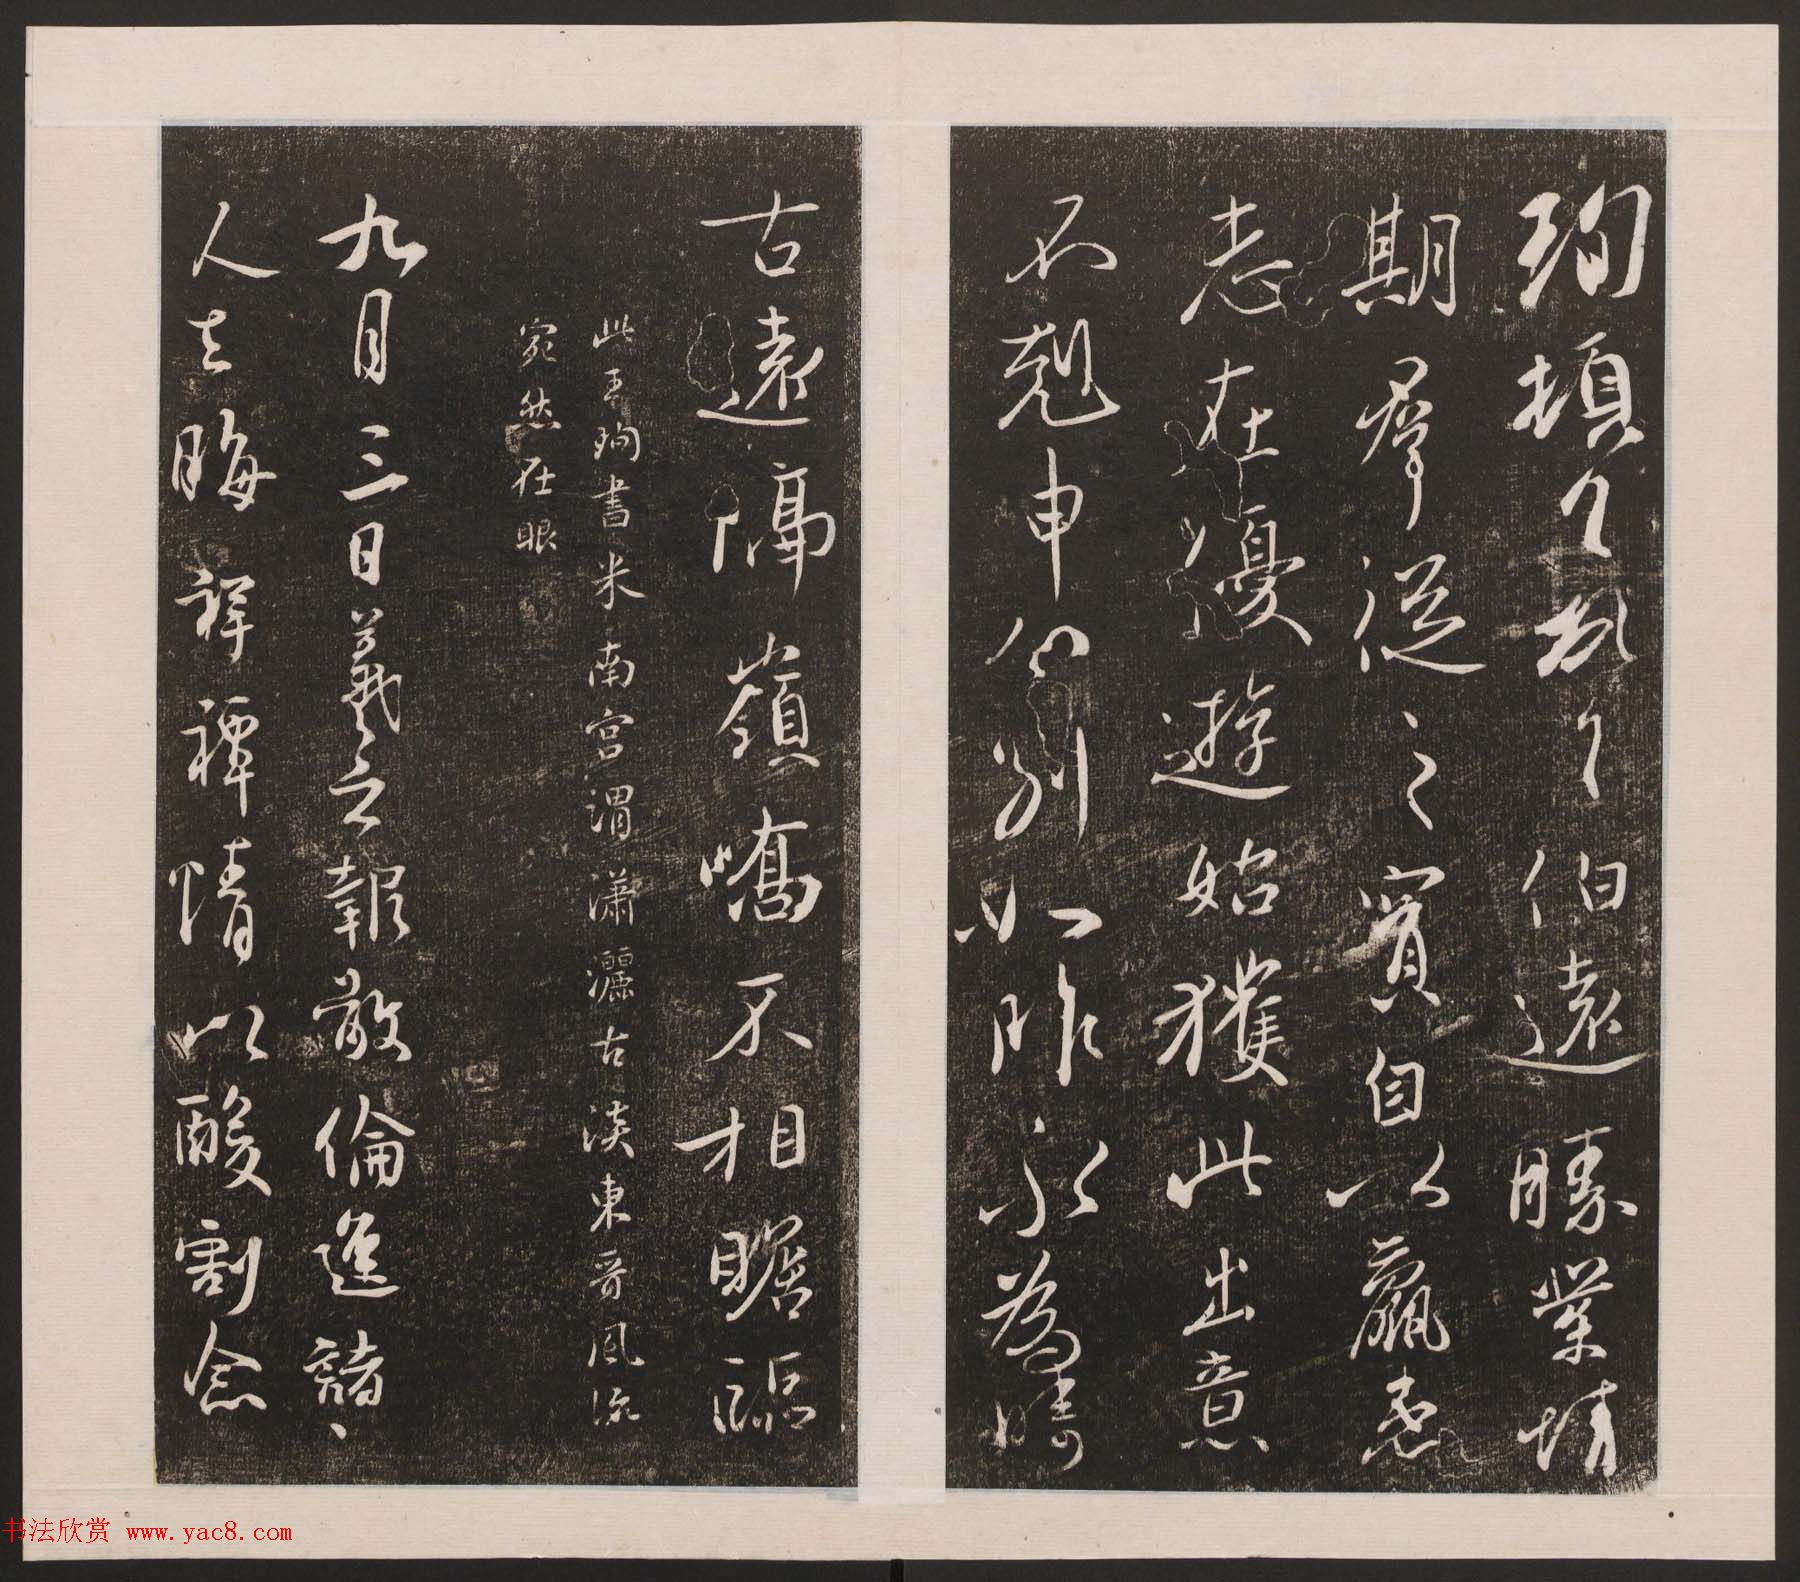 珣頓首頓首伯遠勝業情
期群從之寶自以羸患
志在優遊始獲此出意
不剋申分別如昨永為疇
古遠隔嶺嶠不相瞻臨
此王珣書米南宮謂瀟灑古淡東晉風流
宛然在眼
九月三日羲之報敬倫遮諸〻
人去晦祥禫情以酸割念
书法欣赏 www.yac8.com